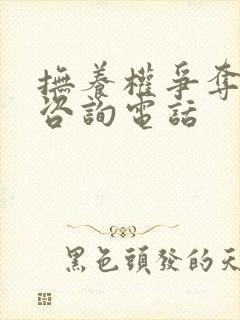 撫養權爭奪
咨詢電話
黑色頭發的天